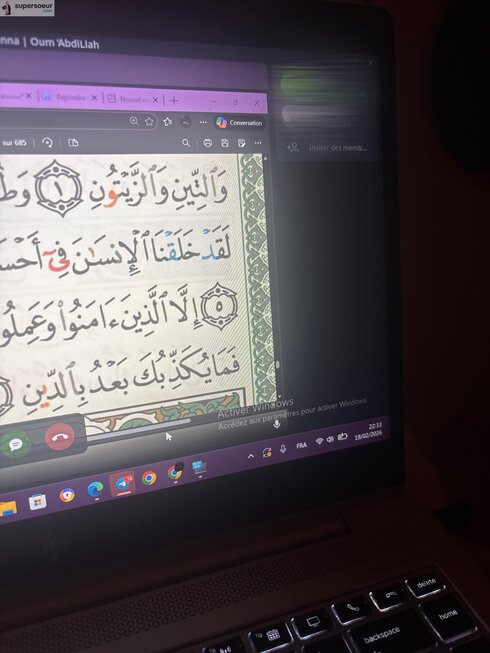 supersoeur
.com
nna | Oum 'AbdiLlah
Rejoindre
Nouvel on
Conversation
sur 685
Inviter des memb...
وَٱلتِّينِ وَٱلزَّيْتُونِ ١
لَقَدْ خَلَقْنَا ٱلْإِنسَٰنَ فِىٓ أَحْسَ
٥ إِلَّا ٱلَّذِينَ ءَامَنُوا۟ وَعَمِلُو
فَمَا يُكَذِّبُكَ بَعْدُ بِٱلدِّينِ
Activer Windows
Accédez aux paramètres pour activer Windows.
FRA
22:33
19/02/2026
delete
home
backspace